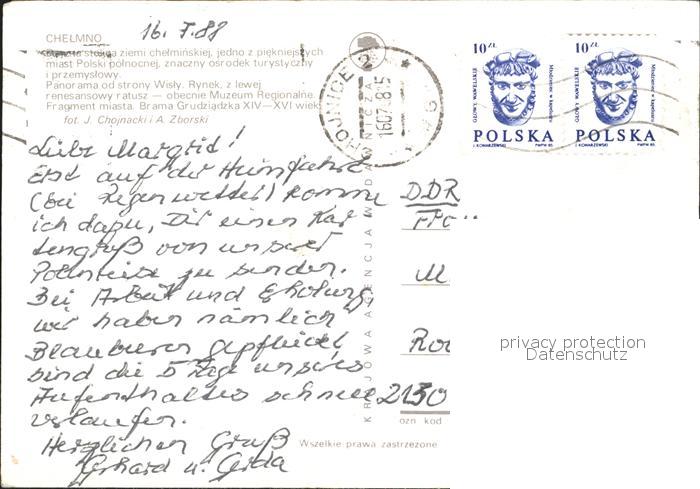 CHEŁMNO
16.7.88
stolica ziemi chełmińskiej, jedno z piękniejszych
miast Polski północnej, znaczny ośrodek turystyczny
i przemysłowy.
Panorama od strony Wisły. Rynek, z lewej
renesansowy ratusz — obecnie Muzeum Regionalne.
Fragment miasta. Brama Grudziądzka XIV—XVI wiek
fot. J. Chojnacki i A. Zborski
Liebe Margrid!
Erst auf der Heimfahrt
(bei Regenwetter) komme
ich dazu, Dir einen Kar
tengruß von unserer
Polenreise zu senden.
Bei Arbeit und Erholung
wir haben nämlich
Blaubeeren gepflückt
sind die 5 Tage unseres
Aufenthaltes schnell
verlaufen.
Herzlichen Gruß
Gerhard u. Gerda
KRAJOWA AGENCJA WYDAWNICZA
CHOJNICE 2
10 ZŁ
10 ZŁ
POLSKA
POLSKA
J. KONARZEWSKI
PWPW 85.
J. KONARZEWSKI
PWPW 85.
DDR
2130
ozn kod
Wszelkie prawa zastrzeżone
privacy protection
Datenschutz